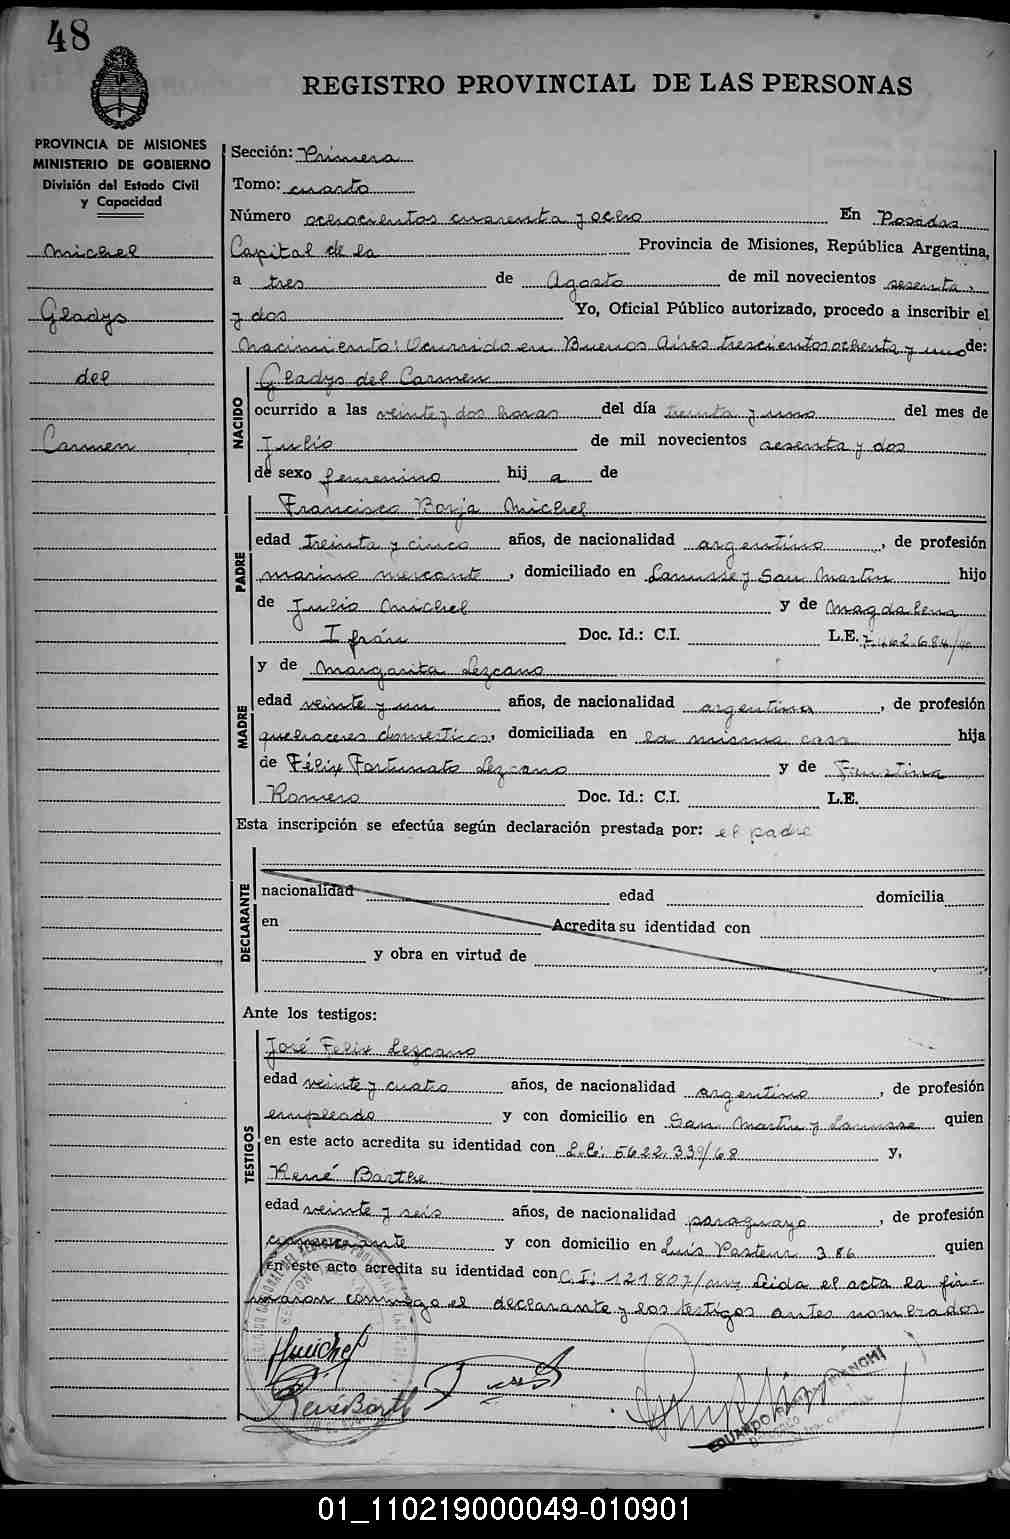 48
REGISTRO PROVINCIAL DE LAS PERSONAS
PROVINCIA DE MISIONES
MINISTERIO DE GOBIERNO
División del Estado Civil
y Capacidad
Michel
Gladys
del
Carmen
Sección: Primera
Tomo: cuarto
Número ochocientos cuarenta y ocho En Posadas
Capital de la Provincia de Misiones, República Argentina,
a tres de Agosto de mil novecientos sesenta
y dos Yo, Oficial Público autorizado, procedo a inscribir el
Nacimiento: Ocurrido en Buenos Aires trescientos ochenta y uno de:
NACIDO
Gladys del Carmen
ocurrido a las veinte y dos horas del día treinta y uno del mes de
Julio de mil novecientos sesenta y dos
de sexo femenino hij a de
PADRE
Francisco Borja Michel
edad treinta y cinco años, de nacionalidad argentino, de profesión
marino mercante, domiciliado en Lanusse y San Martin hijo
de Julio Michel y de Magdalena
Ifrán Doc. Id.: C.I. L.E. 7.462.684/
MADRE
y de Margarita Lezcano
edad veinte y un años, de nacionalidad argentina, de profesión
quehaceres domesticos, domiciliada en la misma casa hija
de Félix Fortunato Lezcano y de Faustina
Romero Doc. Id.: C.I. L.E.
Esta inscripción se efectúa según declaración prestada por: el padre
DECLARANTE
nacionalidad edad domicilia
en Acredita su identidad con
y obra en virtud de
Ante los testigos:
TESTIGOS
José Felix Lezcano
edad veinte y cuatro años, de nacionalidad argentino, de profesión
empleado y con domicilio en San Martin y Lanusse quien
en este acto acredita su identidad con L.E: 5622.339/68 y,
René Barthe
edad veinte y seis años, de nacionalidad paraguayo, de profesión
comerciante y con domicilio en Luis Pasteur 386 quien
en este acto acredita su identidad con C.I: 121807/ Leida el acta la fir-
maron conmigo el declarante y los testigos antes nombrados
FMichel
René Barth
EDUARDO BIANCHI
01_110219000049-010901